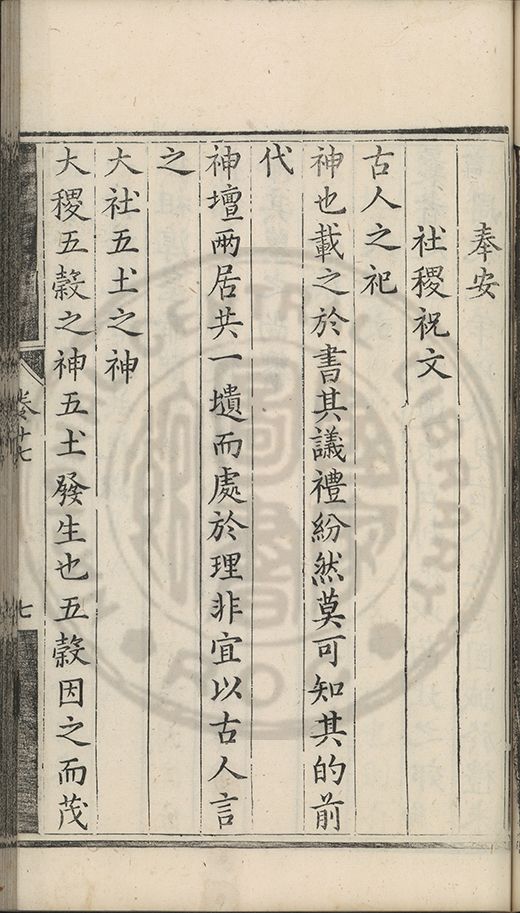 奉安
社稷祝文
古人之祀
神也載之於書其議禮紛然莫可知其的前
代
神壇兩居共一壝而處於理非宜以古人言
之
大社五土之神
大稷五穀之神五土發生也五穀因之而茂
卷十七
七